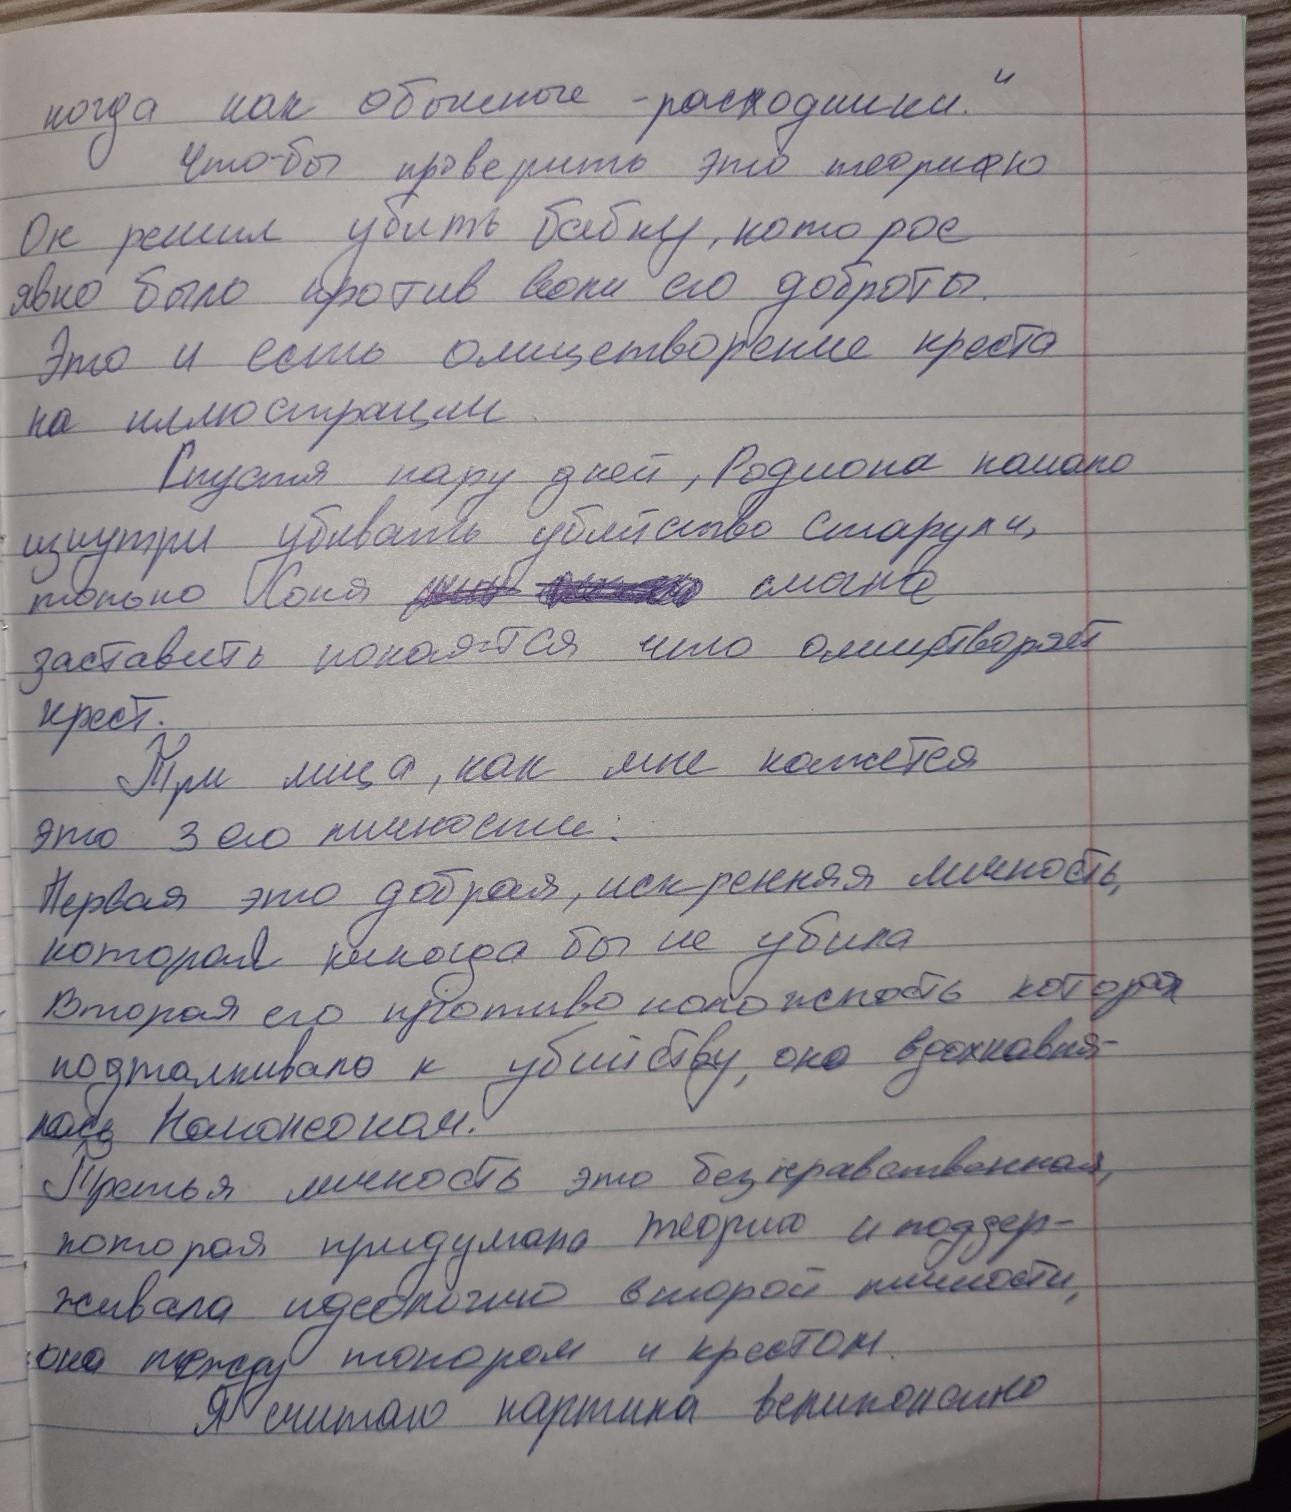 когда как обычные - расходники."
Что-бы проверить это теорию
Он решил убить бабку, которое
явно было против воли его доброты.
Это и есть олицетворение креста
на иллюстрации.
Спустя пару дней, Родиона начало
изнутри убивать убийство старухи,
только Соня смогла
заставить покаятся что олицетворяет
крест.
Три лица, как мне кажется
это 3 его личности:
Первая это добрая, искренняя личность,
которая никогда бы не убила
Вторая его противоположность которая
подталкивала к убийству, она вдохнавля-
лась Наполеоном.
Третья личность это безнравственная,
которая придумала теорию и поддер-
живала идеологию второй личности,
она между топором и крестом.
Я считаю картина великолепно